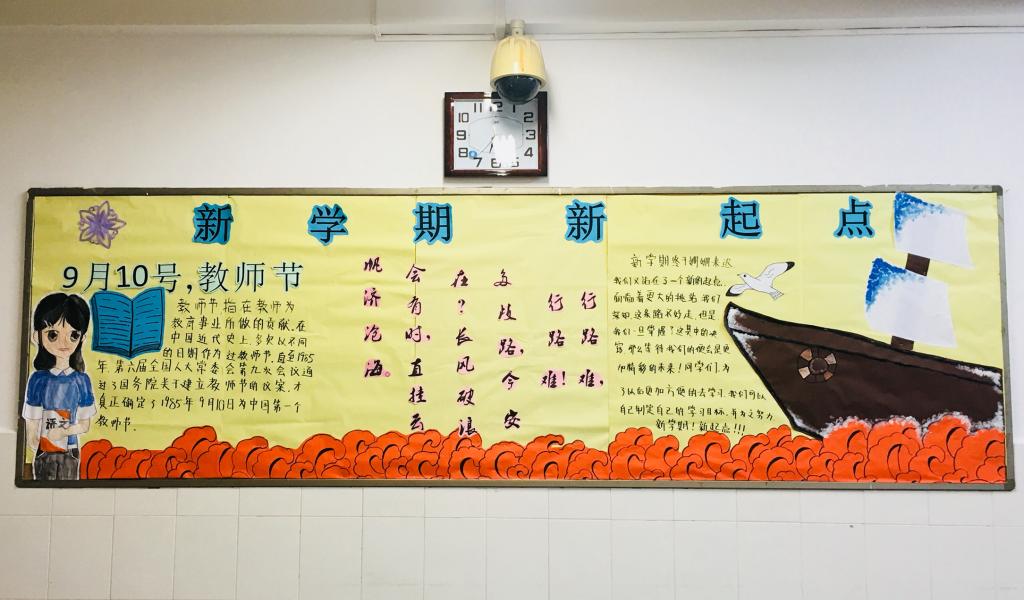 新学期新起点
11 12 1
10 2
9 3
8 4
7 6 5
9月10号,教师节
教师节,指在教师为
教育事业所做的贡献.在
中国近代史上,多次以不同
的日期作为过教师节.直至1985
年,第六届全国人大常委会第九次会议通
过了国务院关于建立教师节的议案,才
真正确定了1985年9月10日为中国第一个
教师节.
语文
行路难,
行路难!
多歧路,今安
在?长风破浪
会有时,直挂云
帆济沧海。
新学期终于姗姗来迟
我们又站在了一个新的起点.
面临着更大的挑战 我们
深知,这条路不好走.但是
我们一旦掌握了这其中的决
窍,那么等待我们的便会是更
加精彩的未来!同学们,为
了以后更加方便的去学习.我们可以
自己制定自己的学习目标,并为之努力
新学期!新起点!!!